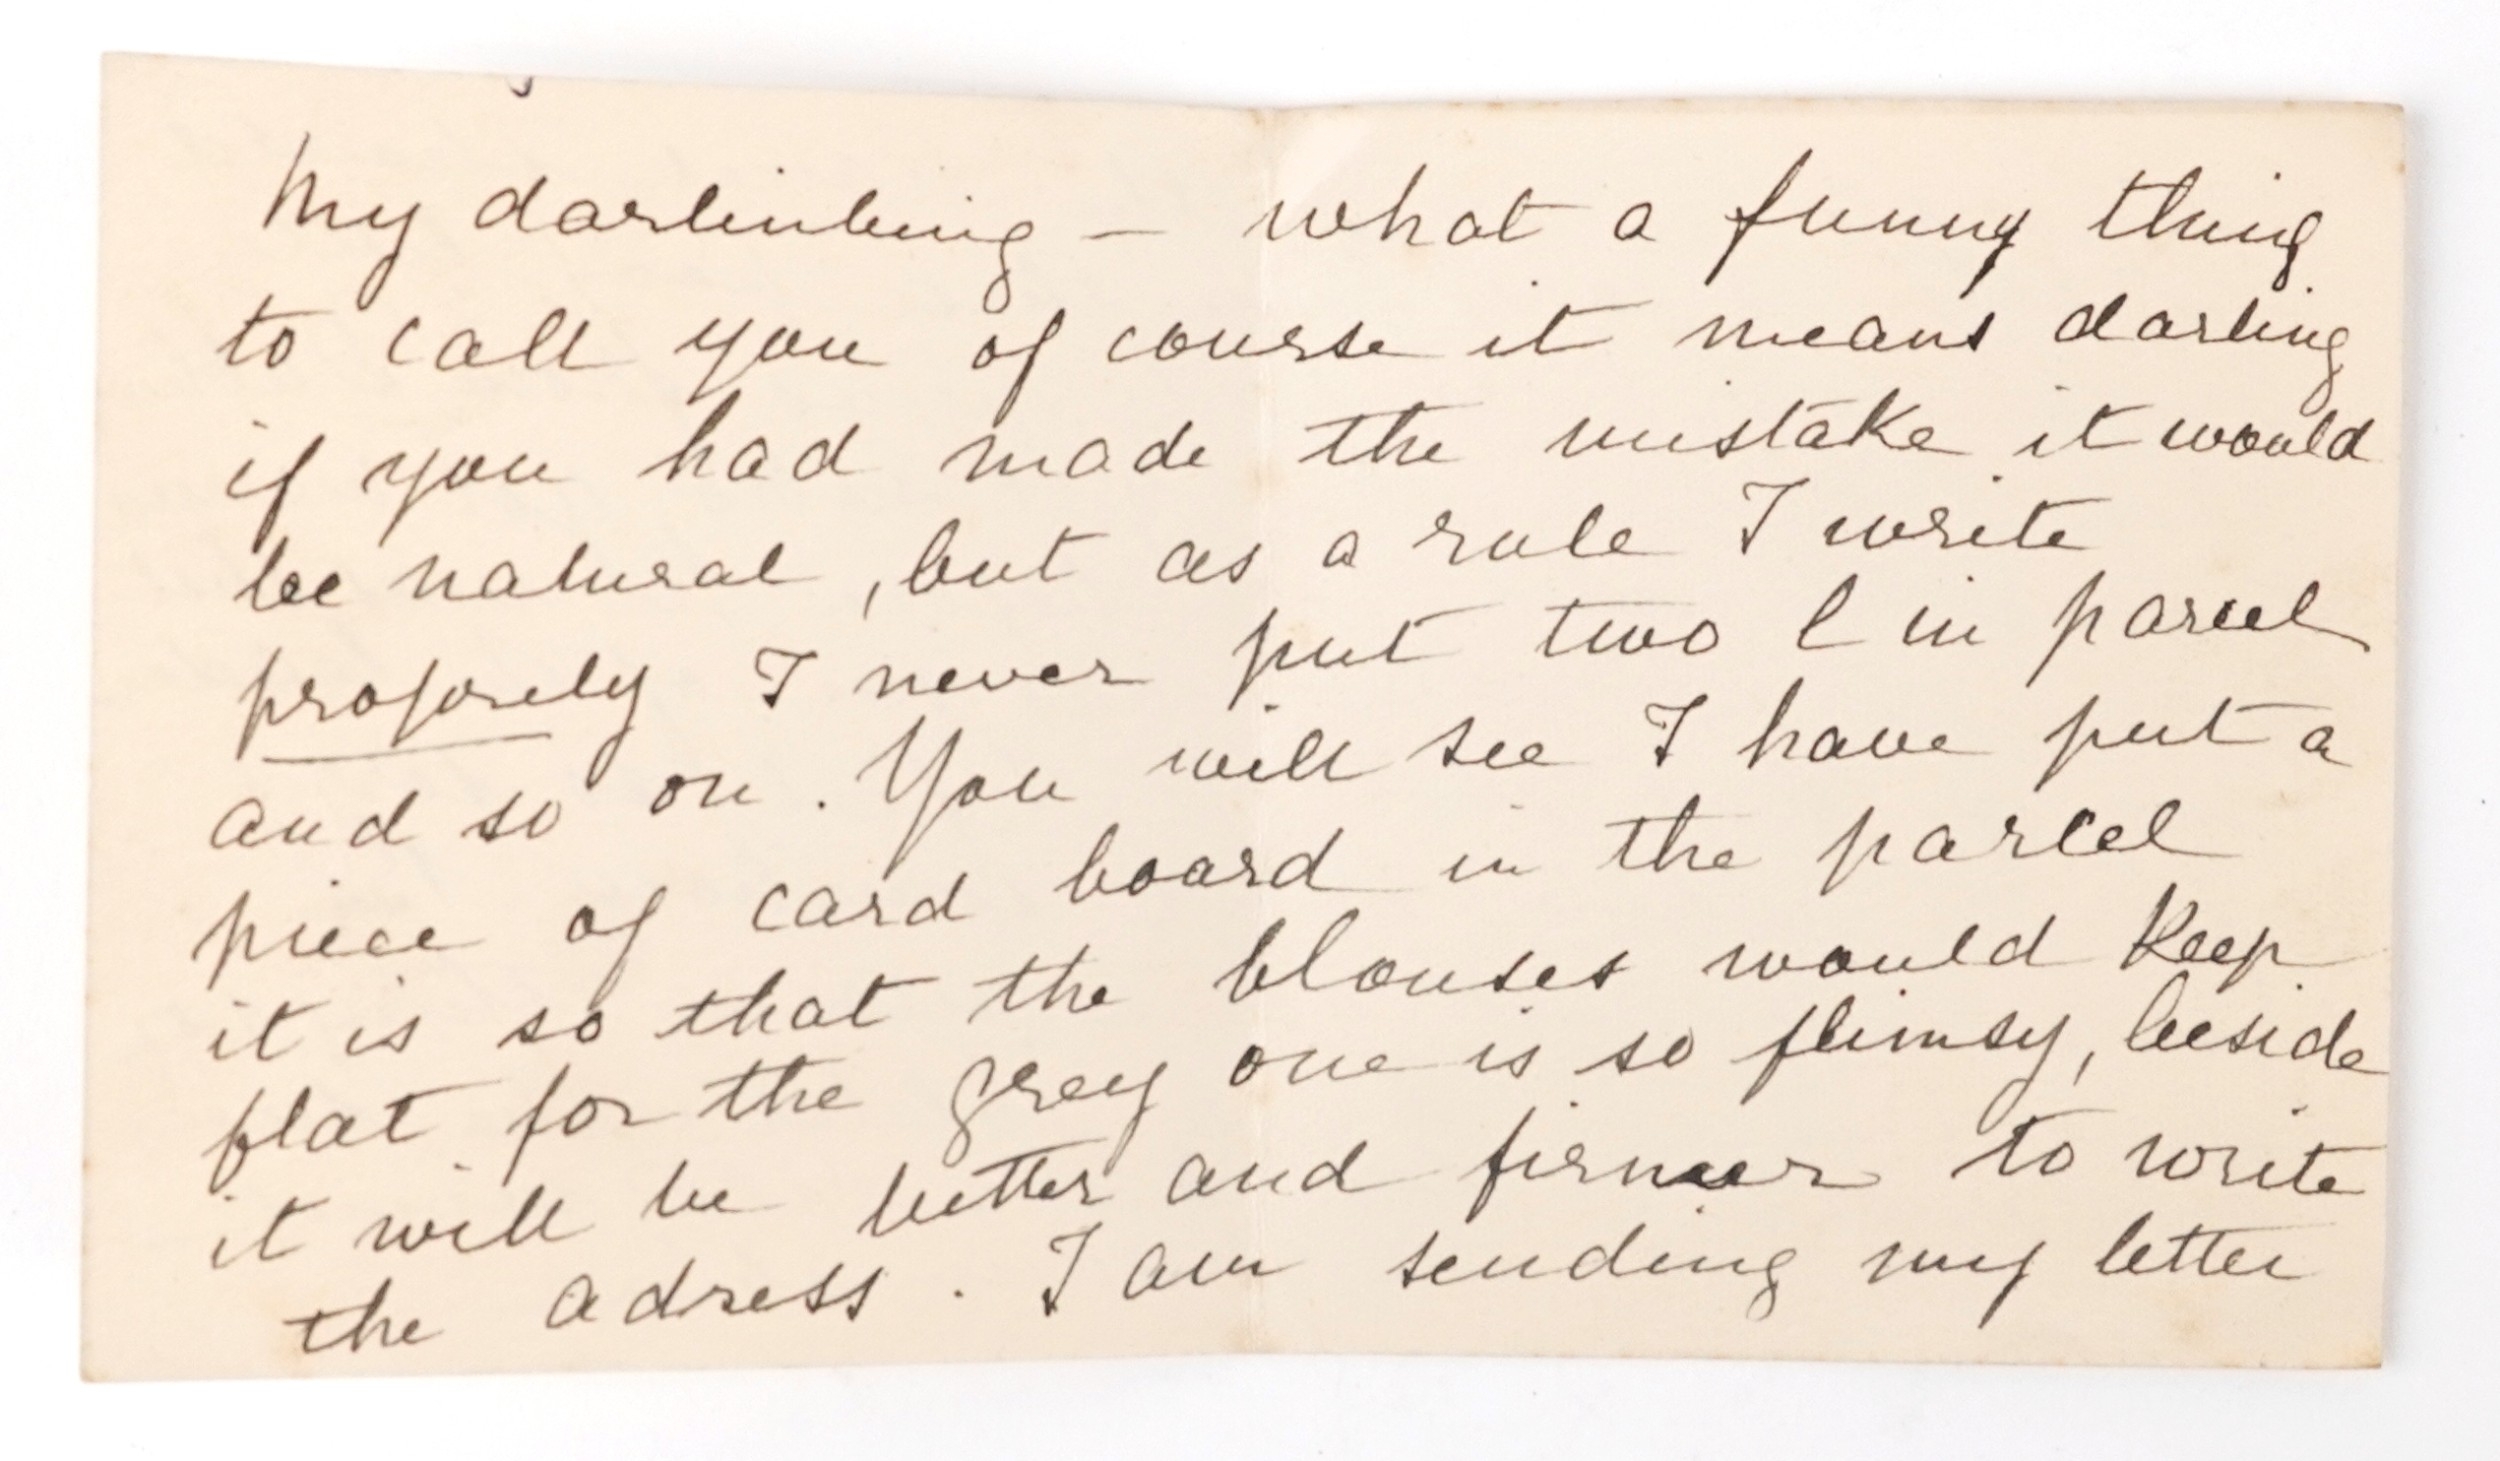 My darlinling — what a funny thing
to call you of course it means darling
if you had made the mistake it would
be natural, but as a rule I write
properely I never put two l in parcel
and so on. You will see I have put a
piece of card board in the parcel
it is so that the blouses would keep
flat for the grey one is so flimsy, beside
it will be better and firmer to write
the adress. I am sending my letter